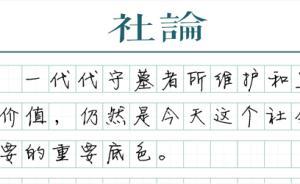 社論
一代代守墓者所维护和
价值，仍然是今天这个社
要的重要底色。